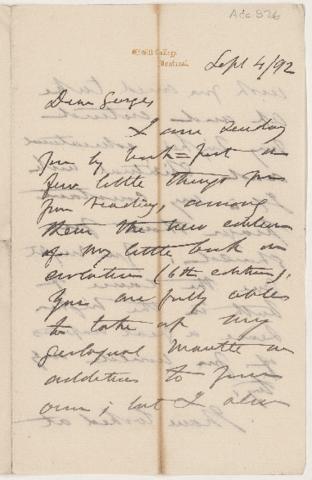 Acc 826
McGill College,
Montreal.
Sept 4/92
Dear George
I am sending
you by book-post a
few little things for
your reading, among
them the new edition
of my little book on
evolution (6th edition).
You are fully able
to take up my
geological mantle in
addition to your
own; but I also